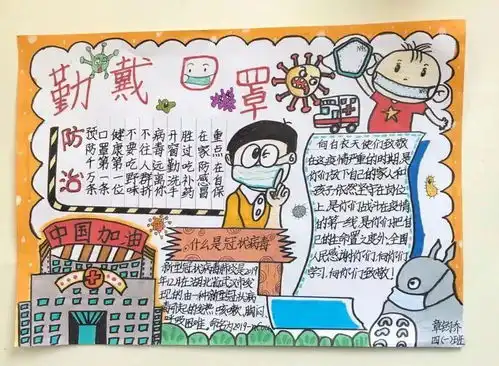 勤戴口罩
防治
预防千万条
口罩第一条
健康第一位
不要吃野味
不往人群挤
病毒远离你
开窗勤洗手
胜过吃补药
在家防感冒
重点在自保
向白衣天使们致敬
在这疫情严重的时期,是
你们放下自己的家人和
孩子依然坚守在岗位
上,是你们战斗在疫情
的第一线,是你们把自
己的生命置之度外,全国
人民感谢你们,向你们
学习,向你们致敬!
中国加油
什么是冠状病毒
新型冠状病毒肺炎是2019
年12月在湖北武汉
现的,由一种新型冠状病
咳嗽,胸闷,
呼吸困难,命名为2019-nCoV
N95
四(一)班